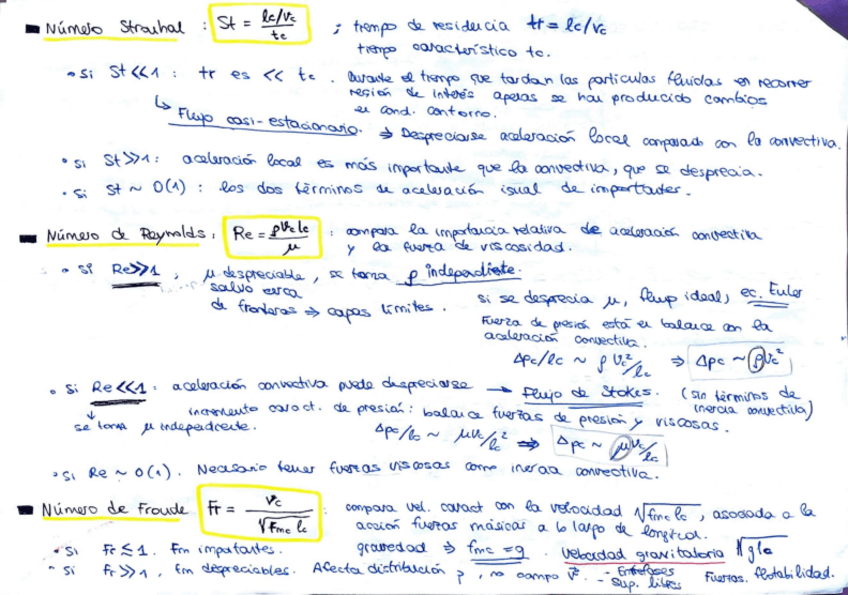 Número Strouhal : St = (lc/vc)/tc ; tiempo de residencia tr = lc/vc
tiempo característico tc.
• Si St<<1 : tr es << tc. Durante el tiempo que tardan las partículas fluidas en recorrer
región de interés apenas se han producido cambios
en cond. contorno.
↳ Flujo casi-estacionario. ⇒ Despreciarse aceleración local comparado con la convectiva.
• Si St>>1: aceleración local es más importante que la convectiva, que se desprecia.
• Si St ~ O(1) : los dos términos de aceleración igual de importantes.
Número de Reynolds: Re = ρVc lc/μ : compara la importancia relativa de aceleración convectiva
y la fuerza de viscosidad.
• Si Re>>1, μ despreciable, se toma ρ independiente.
salvo cerca
de fronteras ⇒ capas límites.
si se desprecia μ, flujo ideal, ec. Euler
Fuerza de presión está en balance con la
aceleración convectiva.
Δpc/lc ~ ρ Vc²/lc ⇒ Δpc ~ ρVc²
• Si Re<<1: aceleración convectiva puede despreciarse → Flujo de Stokes. (sin términos de
inercia convectiva)
↓ incremento caract. de presión: balance fuerzas de presión y viscosas.
se toma μ independiente. Δpc/lc ~ μVc/lc² ⇒ Δpc ~ μVc/lc
• Si Re ~ O(1). Necesario tener fuerzas viscosas como inercia convectiva.
Número de Froude Fr = Vc/√fmc lc : compara vel. caract con la velocidad √fmc lc, asociada a la
acción fuerzas másicas a lo largo de longitud.
• Si Fr ≤ 1. Fm importantes. gravedad ⇒ fmc = g. velocidad gravitatoria √glc
• Si Fr>>1, fm depreciables. Afecta distribución p, no campo v. - Interfases Fuerzas. flotabilidad.
- Sup. libres